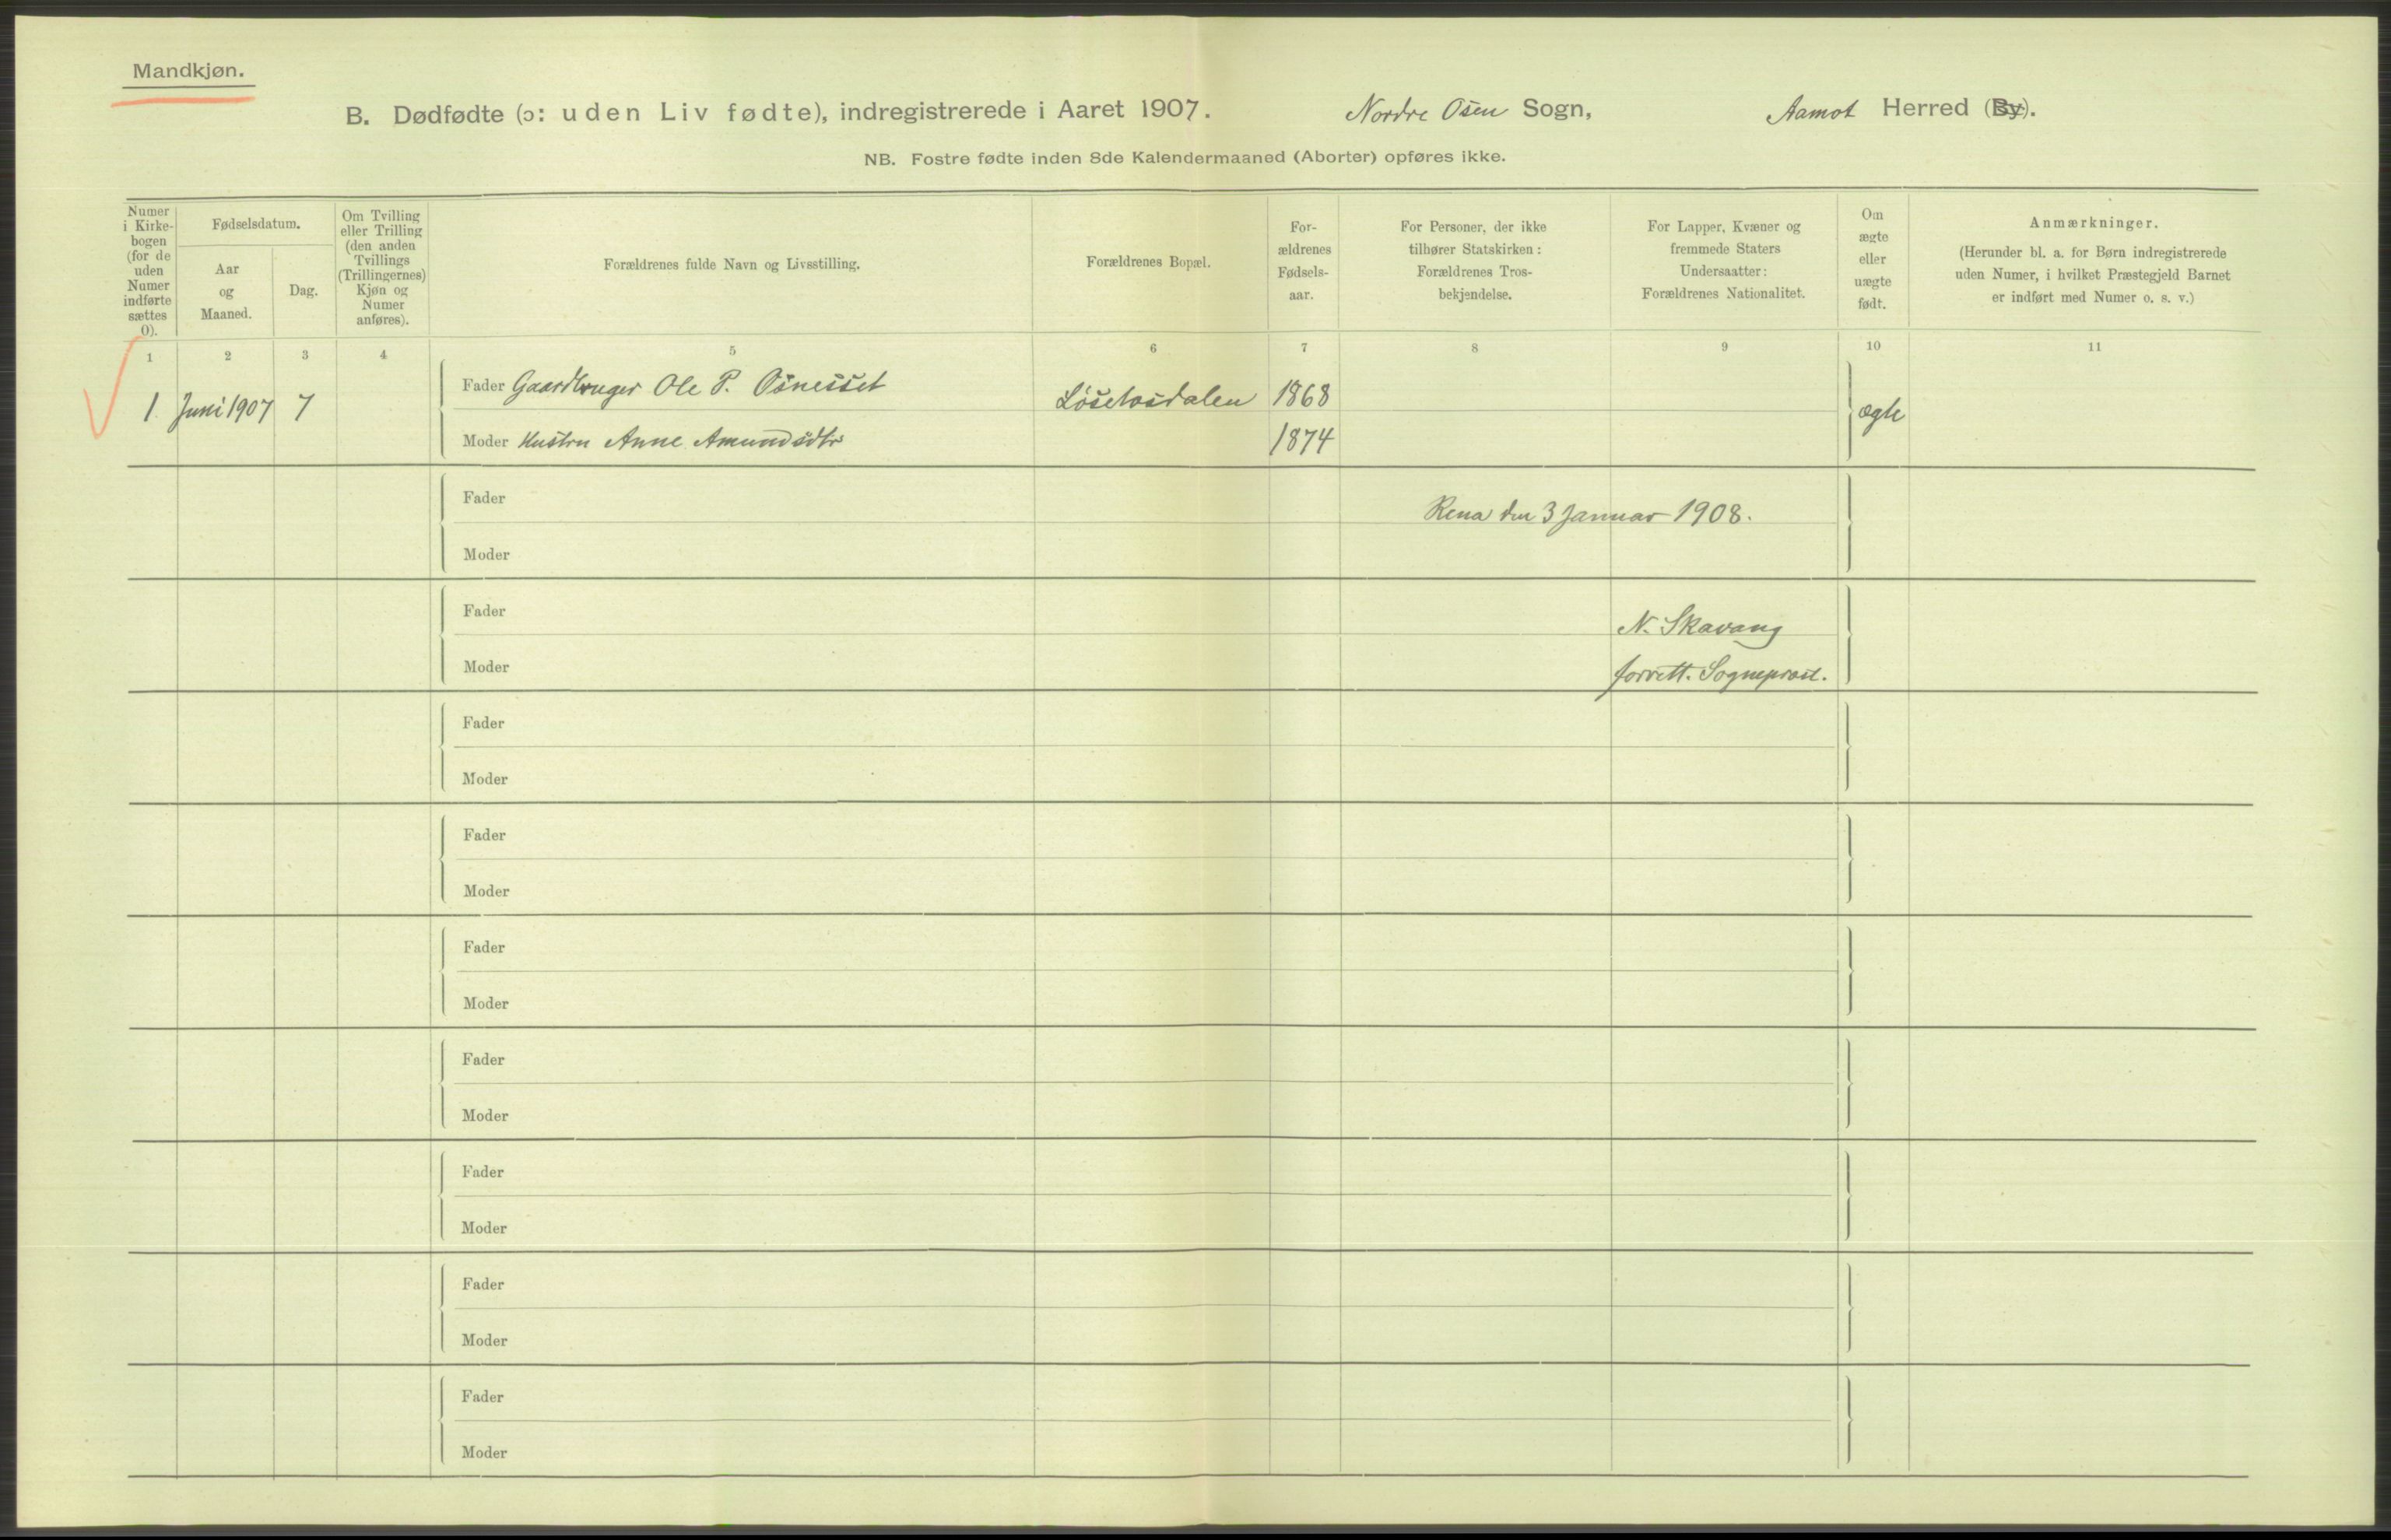 Mandkjøn.
B. Dødfødte (ɔ: uden Liv fødte), indregistrerede i Aaret 1907. Nordre Osen Sogn, Aamot Herred (By).
NB. Fostre fødte inden 8de Kalendermaaned (Aborter) opføres ikke.
Numer
i Kirke-
bogen
(for de
uden
Numer
indførte
sættes
0).
Fødselsdatum.
Aar
og
Maaned.
Dag.
Om Tvilling
eller Trilling
(den anden
Tvillings
(Trillingernes)
Kjøn og
Numer
anføres).
Forældrenes fulde Navn og Livsstilling.
Forældrenes Bopæl.
For-
ældrenes
Fødsels-
aar.
For Personer, der ikke
tilhører Statskirken:
Forældrenes Tros-
bekjendelse.
For Lapper, Kvæner og
fremmede Staters
Undersaatter:
Forældrenes Nationalitet.
Om
ægte
eller
uægte
født.
Anmærkninger.
(Herunder bl. a. for Børn indregistrerede
uden Numer, i hvilket Præstegjeld Barnet
er indført med Numer o. s. v.)
1 2 3 4 5 6 7 8 9 10 11
Fader Gaardbruger Ole P. Osnesset 1868
1. Juni 1907 7 ægte
Moder Hustru Anne Amundsdtr 1874
Fader
Rena den 3 Januar 1908.
Moder
Fader
N. Skavang
Moder
forrett. Sogneprest.
Fader
Moder
Fader
Moder
Fader
Moder
Fader
Moder
Fader
Moder
Fader
Moder
Fader
Moder